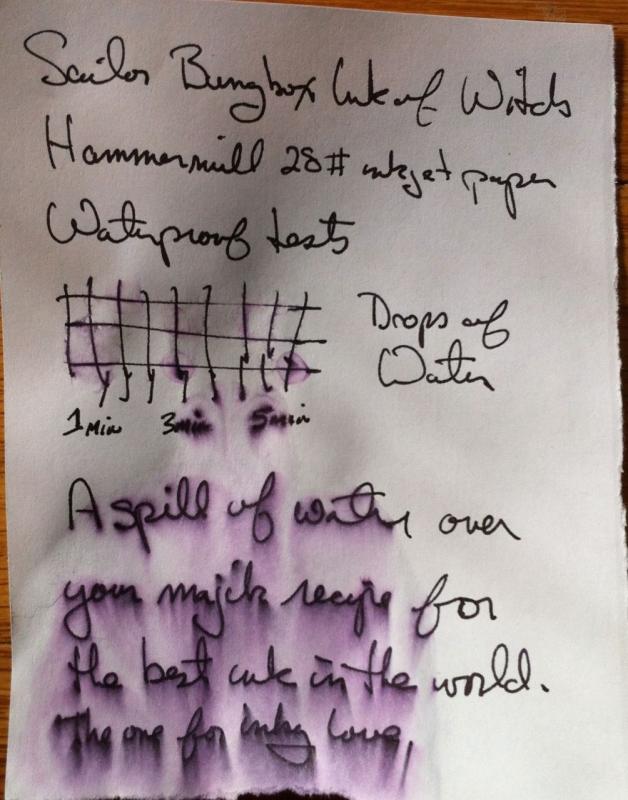 Sailor Bungbox Ink of Witch
Hammermill 28# inkjet paper
Waterproof tests
Drops of
Water
1 Min 3 min 5 min
A spill of water over
your majik recipe for
the best ink in the world.
The one for inky love,